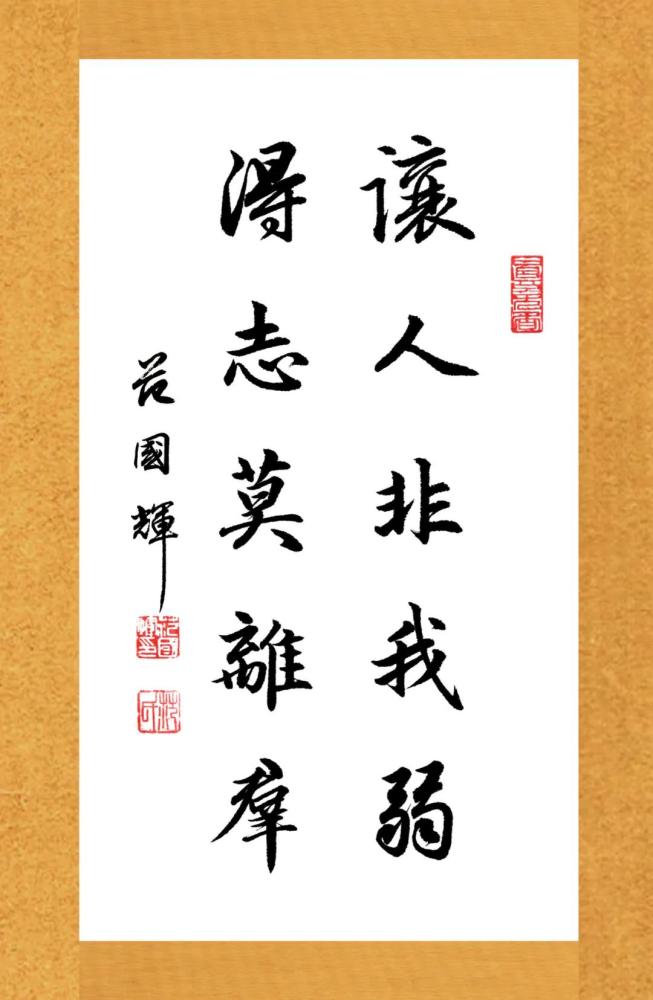 讓人非我弱
得志莫離羣
范國輝